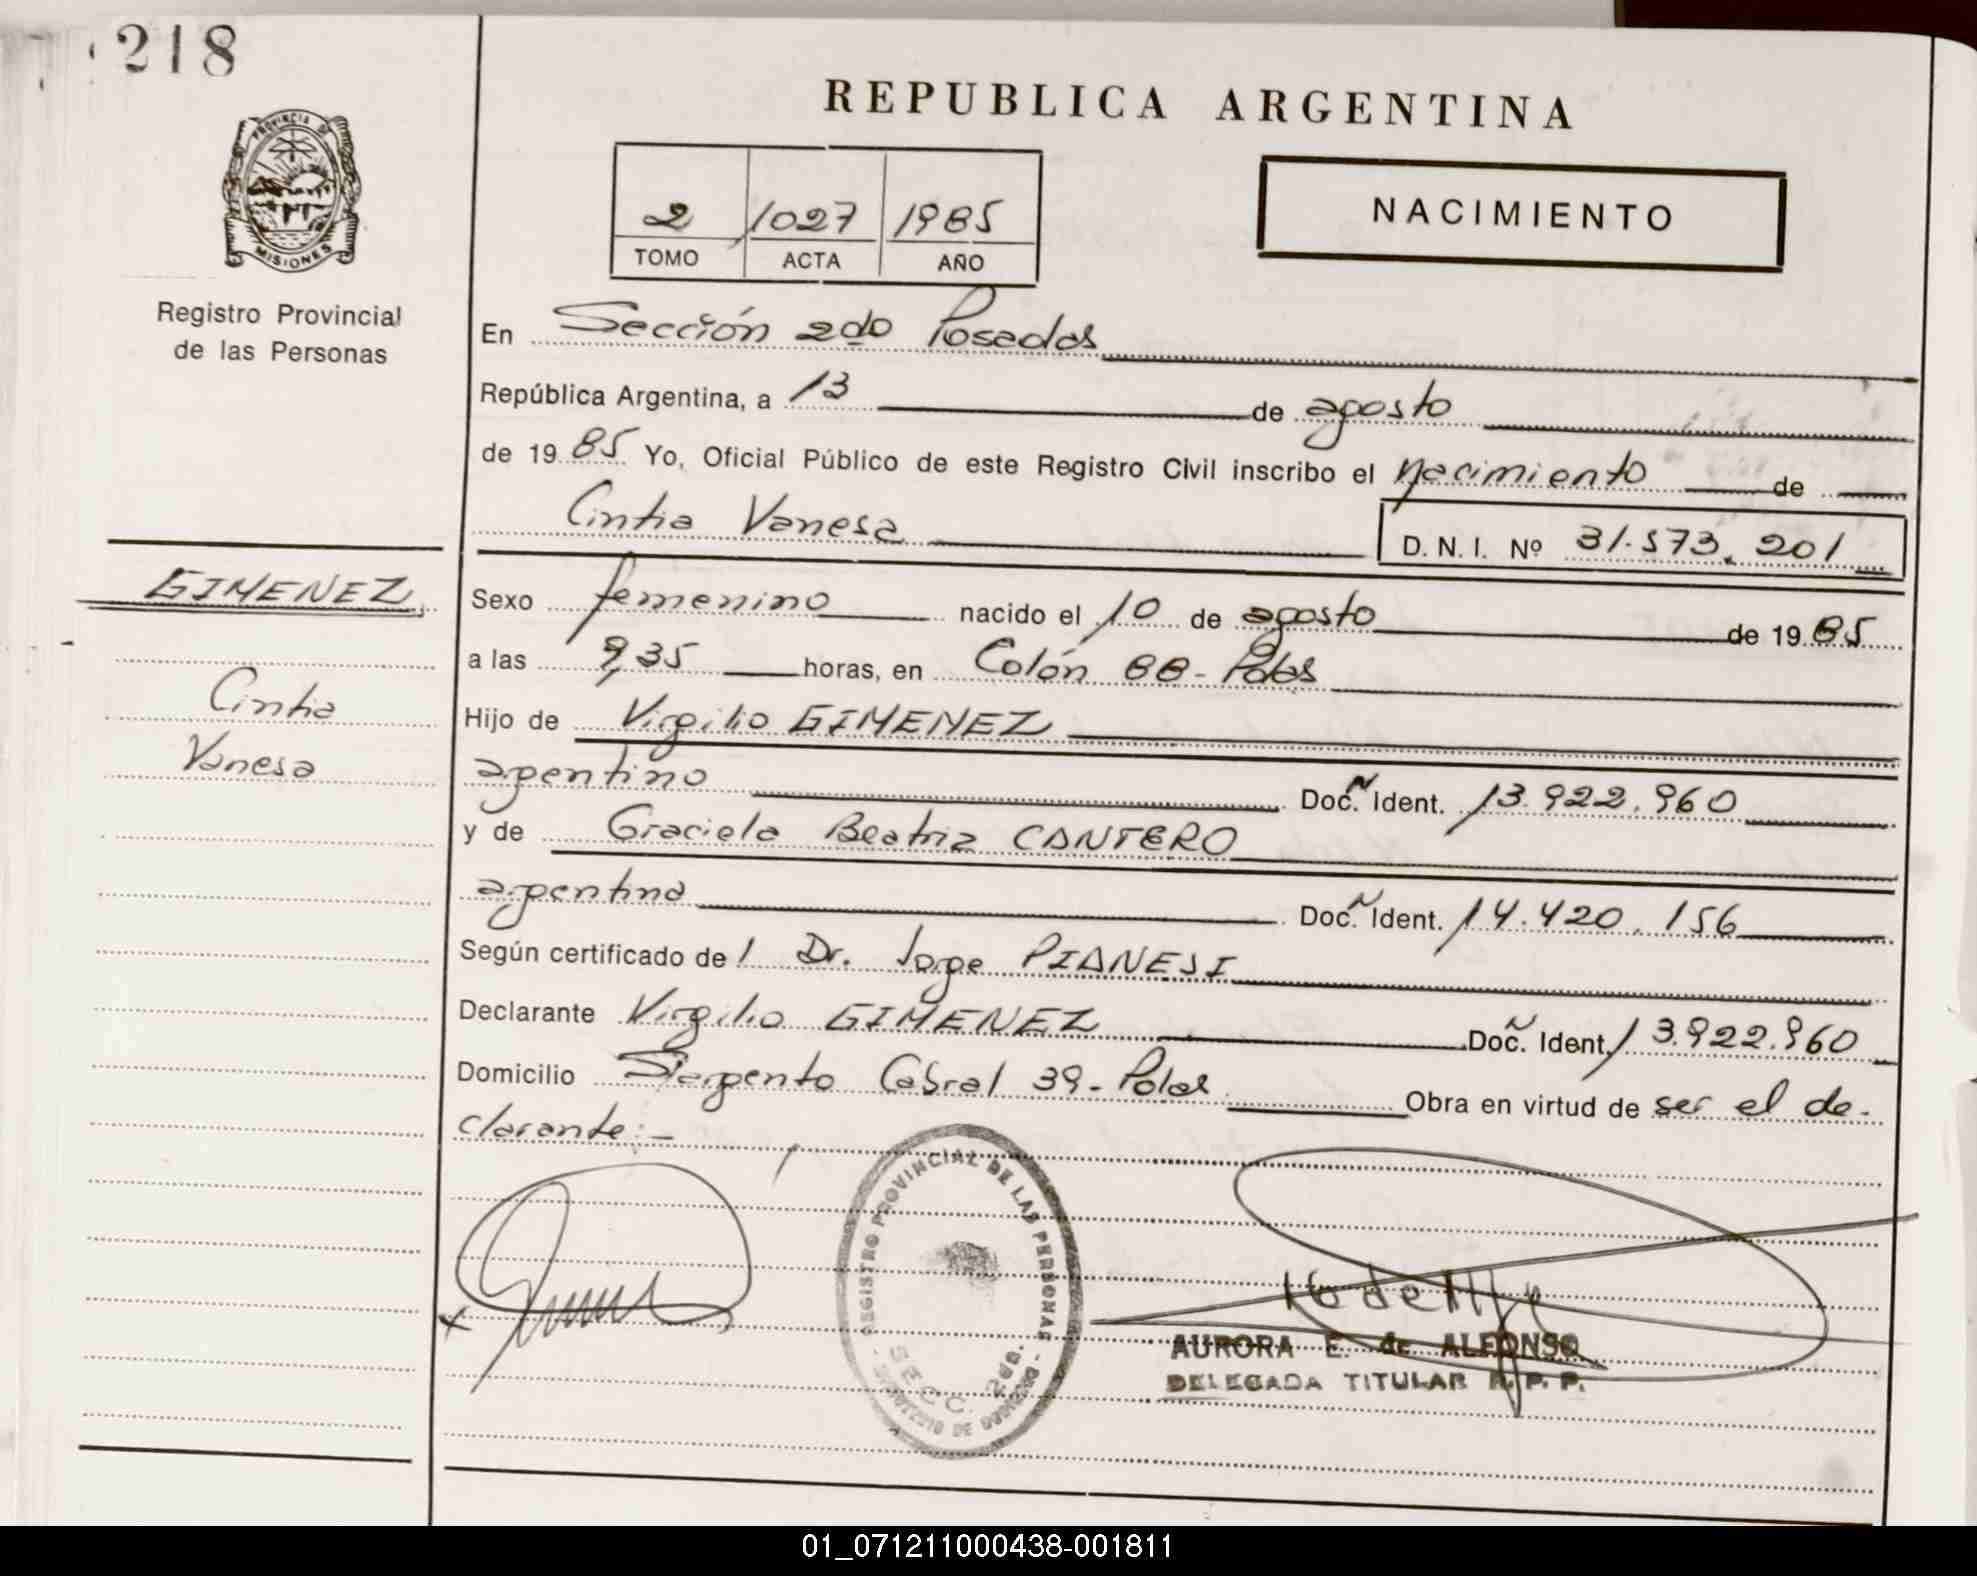 218
REPUBLICA ARGENTINA
PROVINCIA DE MISIONES
Registro Provincial
de las Personas
NACIMIENTO
2 1027 1985
TOMO ACTA AÑO
En Sección 2do Posadas
República Argentina, a 13 de agosto
de 1985 Yo, Oficial Público de este Registro Civil inscribo el nacimiento de
Cintia Vanesa D. N. I. Nº 31.573.201
GIMENEZ
Cintia
Vanesa
Sexo femenino nacido el 10 de agosto de 1985
a las 9,35 horas, en Colón 88 - Pdas
Hijo de Virgilio GIMENEZ
argentino Doc. Ident. 13.922.960
y de Graciela Beatriz CANTERO
argentina Doc. Ident. 14.420.156
Según certificado de l Dr. Jorge PIANESI
Declarante Virgilio GIMENEZ Doc. Ident. 13.922.960
Domicilio Sargento Cabral 39 - Pdas Obra en virtud de ser el de-
clarante:-
REGISTRO PROVINCIAL DE LAS PERSONAS
SECC. 2da.
AURORA E. de ALFONSO
DELEGADA TITULAR R. P. P.
01_071211000438-001811